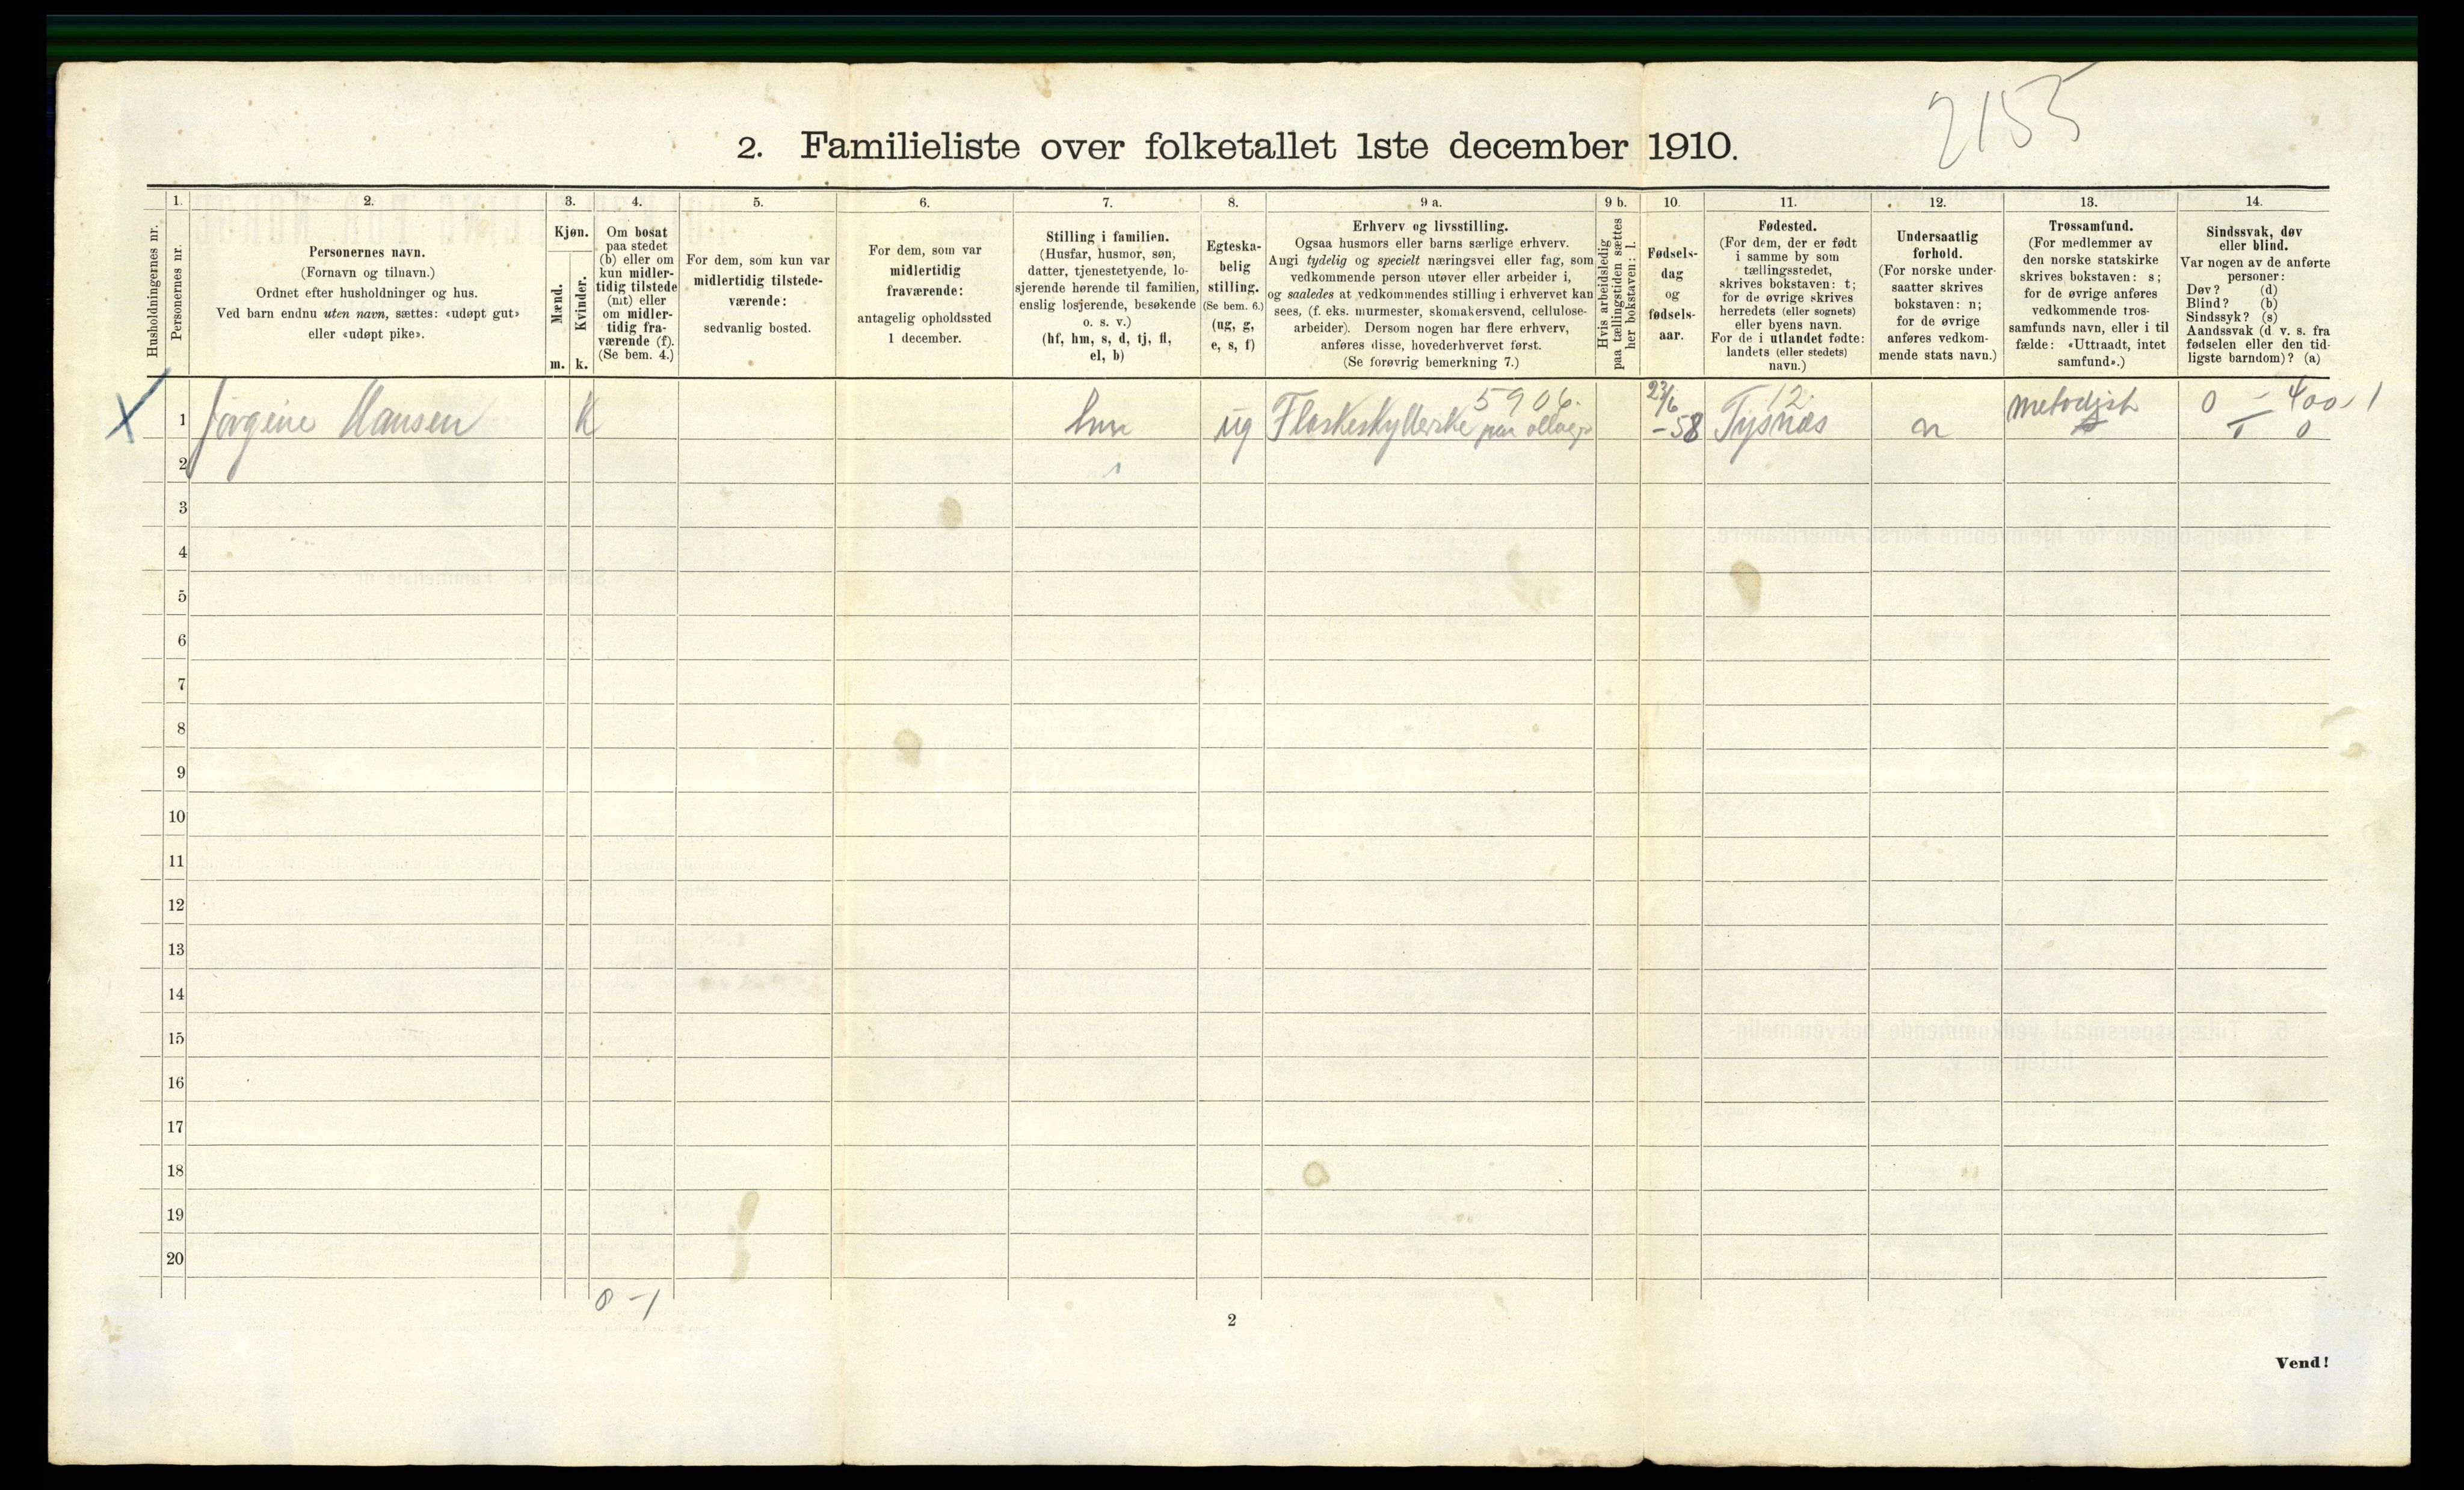 2155
2. Familieliste over folketallet 1ste december 1910.
Husholdningernes nr.
1.
Personernes nr.
2.
Personernes navn.
(Fornavn og tilnavn.)
Ordnet efter husholdninger og hus.
Ved barn endnu uten navn, sættes: «udøpt gut»
eller «udøpt pike».
3.
Kjøn.
Mænd.
Kvinder.
m. k.
4.
Om bosat
paa stedet
(b) eller om
kun midler-
tidig tilstede
(mt) eller
om midler-
tidig fra-
værende (f).
(Se bem. 4.)
5.
For dem, som kun var
midlertidig tilstede-
værende:
sedvanlig bosted.
6.
For dem, som var
midlertidig
fraværende:
antagelig opholdssted
1 december.
7.
Stilling i familien.
(Husfar, husmor, søn,
datter, tjenestetyende, lo-
sjerende hørende til familien,
enslig losjerende, besøkende
o. s. v.)
(hf, hm, s, d, tj, fl,
el, b)
8.
Egteska-
belig
stilling.
(Se bem. 6.)
(ug, g,
e, s, f)
9 a.
Erhverv og livsstilling.
Ogsaa husmors eller barns særlige erhverv.
Angi tydelig og specielt næringsvei eller fag, som
vedkommende person utøver eller arbeider i,
og saaledes at vedkommendes stilling i erhvervet kan
sees, (f. eks. murmester, skomakersvend, cellulose-
arbeider). Dersom nogen har flere erhverv,
anføres disse, hovederhvervet først.
(Se forøvrig bemerkning 7.)
9 b.
Hvis arbeidsledig
paa tællingstiden sættes
her bokstaven: l.
10.
Fødsels-
dag
og
fødsels-
aar.
11.
Fødested.
(For dem, der er født
i samme by som
tællingsstedet,
skrives bokstaven: t;
for de øvrige skrives
herredets (eller sognets)
eller byens navn.
For de i utlandet fødte:
landets (eller stedets)
navn.)
12.
Undersaatlig
forhold.
(For norske under-
saatter skrives
bokstaven: n;
for de øvrige
anføres vedkom-
mende stats navn.)
13.
Trossamfund.
(For medlemmer av
den norske statskirke
skrives bokstaven: s;
for de øvrige anføres
vedkommende tros-
samfunds navn, eller i til
fælde: «Uttraadt, intet
samfund».)
14.
Sindssvak, døv
eller blind.
Var nogen av de anførte
personer:
Døv? (d)
Blind? (b)
Sindssyk? (s)
Aandssvak (d. v. s. fra
fødselen eller den tid-
ligste barndom)? (a)
5906. 23/6 12. metodist 0 - 400 - 1
X 1 Jörgine Hansen K hm ug Flaskeskyllerske paa -58 Tysnæs n 0
2
3
4
5
6
7
8
9
10
11
12
13
14
15
16
17
18
19
20
0 - 1
2
Vend!